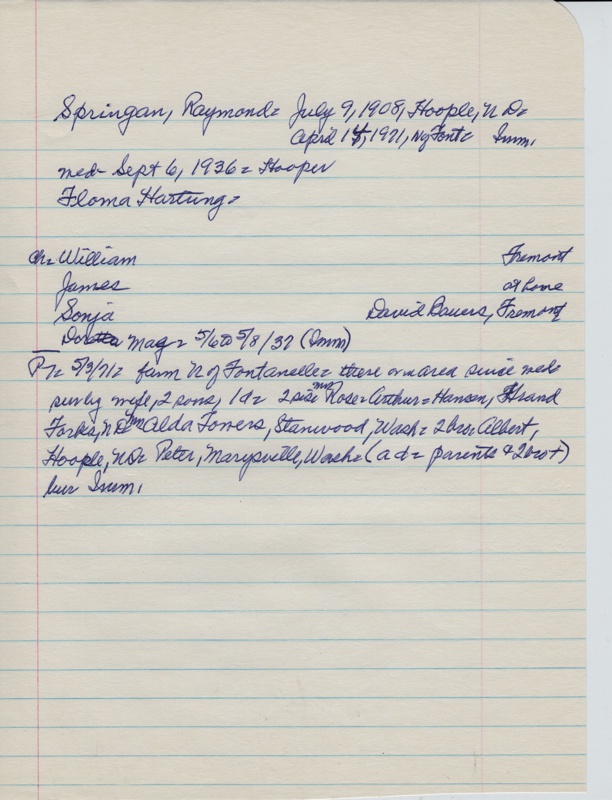 Springan, Raymond= July 9, 1908, Hoople, N D=
April 14, 1971, N of Font= Imm.
med- Sept 6, 1936= Hooper
Floma Hartung=
Ch= William Fremont
James at home
Sonja David Bauers, Fremont
Mag= 5/6 to 5/8/37 (Imm)
P= 5/3/71= farm N of Fontanelle= there or in area since med=
surv by wife, 2 sons, 1 d= 2 sis= Mrs Rose= Arthur= Hansen, Grand
Forks, ND= Mrs Alda Towers, Stanwood, Wash= 2 bro= Albert,
Hoople, ND= Peter, Marysville, Wash= (a d= parents & 2 bro+)
bur Imm.